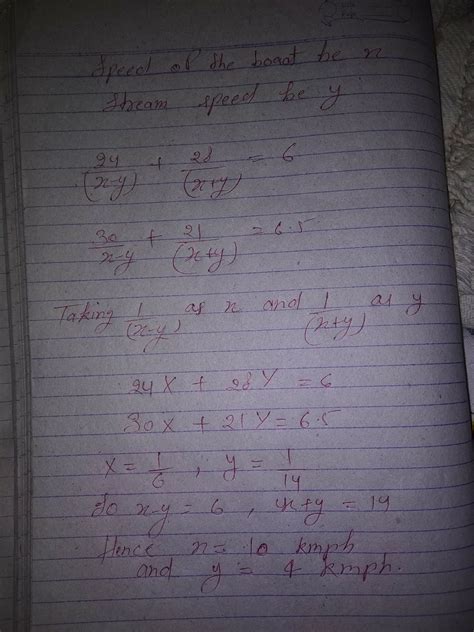 Speed of the boat be x
Stream speed be y
24/(x-y) + 28/(x+y) = 6
30/x-y + 21/(x+y) = 6.5
Taking 1/(x-y) as x and 1/(x+y) as y
24X + 28Y = 6
30X + 21Y = 6.5
X = 1/6 , y = 1/14
So x-y = 6 , x+y = 14
Hence x = 10 kmph
and y = 4 kmph.